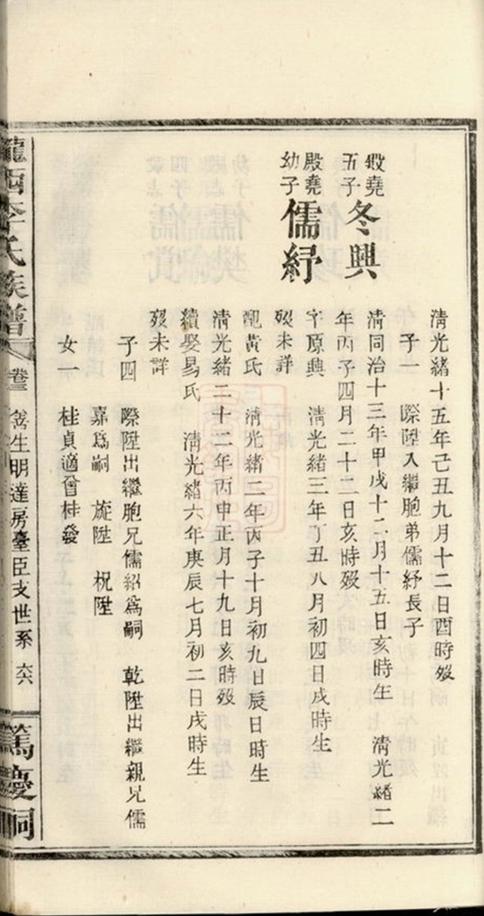 清光緒十五年己丑九月十二日酉時歿
子一　際陞入繼胞弟儒紓長子
殿堯五子
冬興
清同治十三年甲戌十二月十五日亥時生　清光緒二
年丙子四月二十二日亥時歿
殿堯幼子
儒紓
字原興　清光緒三年丁丑八月初四日戌時生
歿未詳
配黃氏　清光緒二年丙子十月初九日辰日時生
清光緒二十二年丙申正月十九日亥時歿
續娶易氏　清光緒六年庚辰七月初二日戌時生
歿未詳
子四　際陞出繼胞兄儒紹為嗣　乾陞出繼親兄儒
嘉為嗣　旋陞　祝陞
女一　桂貞適曾桂發
隴西李氏族譜
卷三
生明達房臺臣支世系
六六
篤慶祠